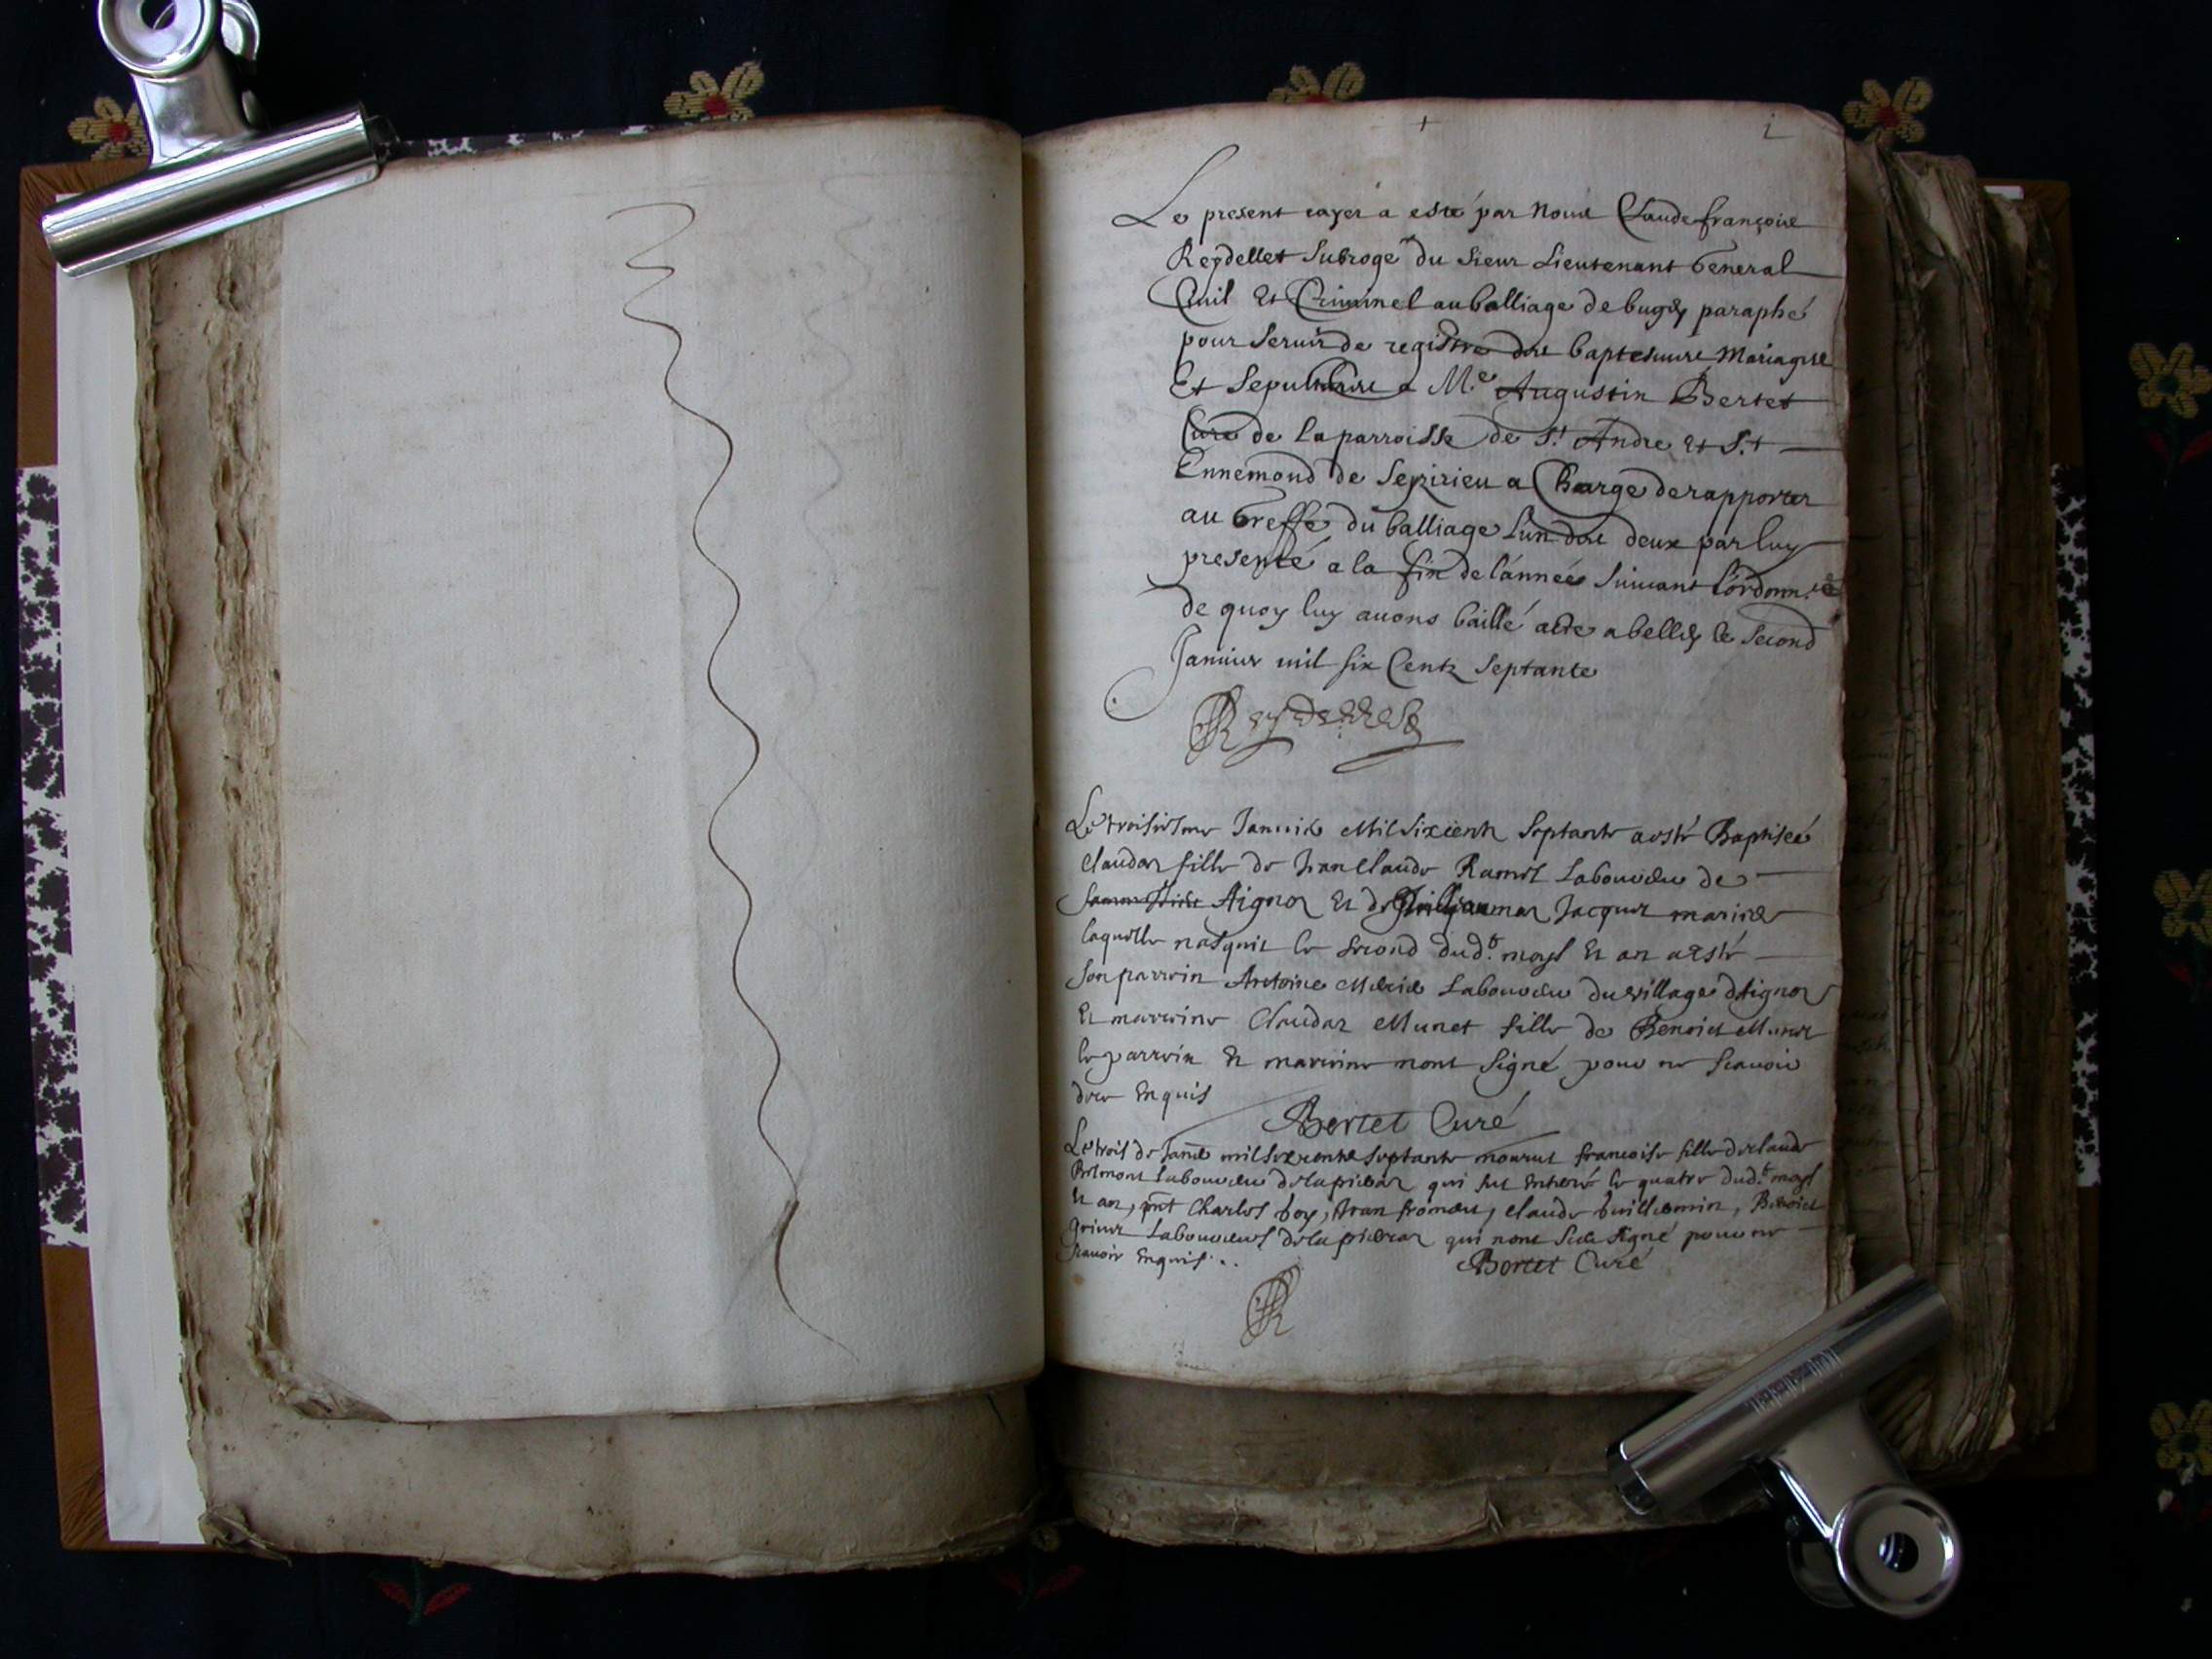 + i
Le present cayer a esté par Nous Claude françois
Reydellet Subrogé du sieur Lieutenant General
Civil Et Criminel au balliage de bugey paraphé
pour servir de registre des baptesmes Mariages
Et Sepultures a M.e Augustin Bertet
Curé de la parroisse de S.t Andre et S.t
Ennemond de Seyzirieu a Charge de rapporter
au Greffe du balliage L'un des deux par luy
presenté a la fin de l'année suivant l'ordonn.ce
de quoy luy avons baillé acte a belley le second
Janvier mil six Centz septante
Reydellet
Le troisiesme Janvier Mil six cents septante a esté Baptisée
Claudaz fille de Jean Claude Ramel Laboureur de
Aignoz et de Guillaumaz Jacquet mariés
laquelle nasquit le second dud.t moys et an a esté
son parrein Antoine Laboureur du village d'Aignoz
et marreine Claudaz Munet fille de Benoict Munet
le parrein et marreine n'ont signé pour ne scavoir
de ce enquis
Bertet Curé
Le trois de Janv mil six cents septante mourut francoise fille de claude
Laboureur de la pierraz qui fut enterré le quatre dud.t moys
et an, pnt Charles boy, Jean froment, claude Guillermin, Benoict
Laboureurs de la pierraz qui n'ont signé pour ne
scavoir enquis..
Bertet Curé
R